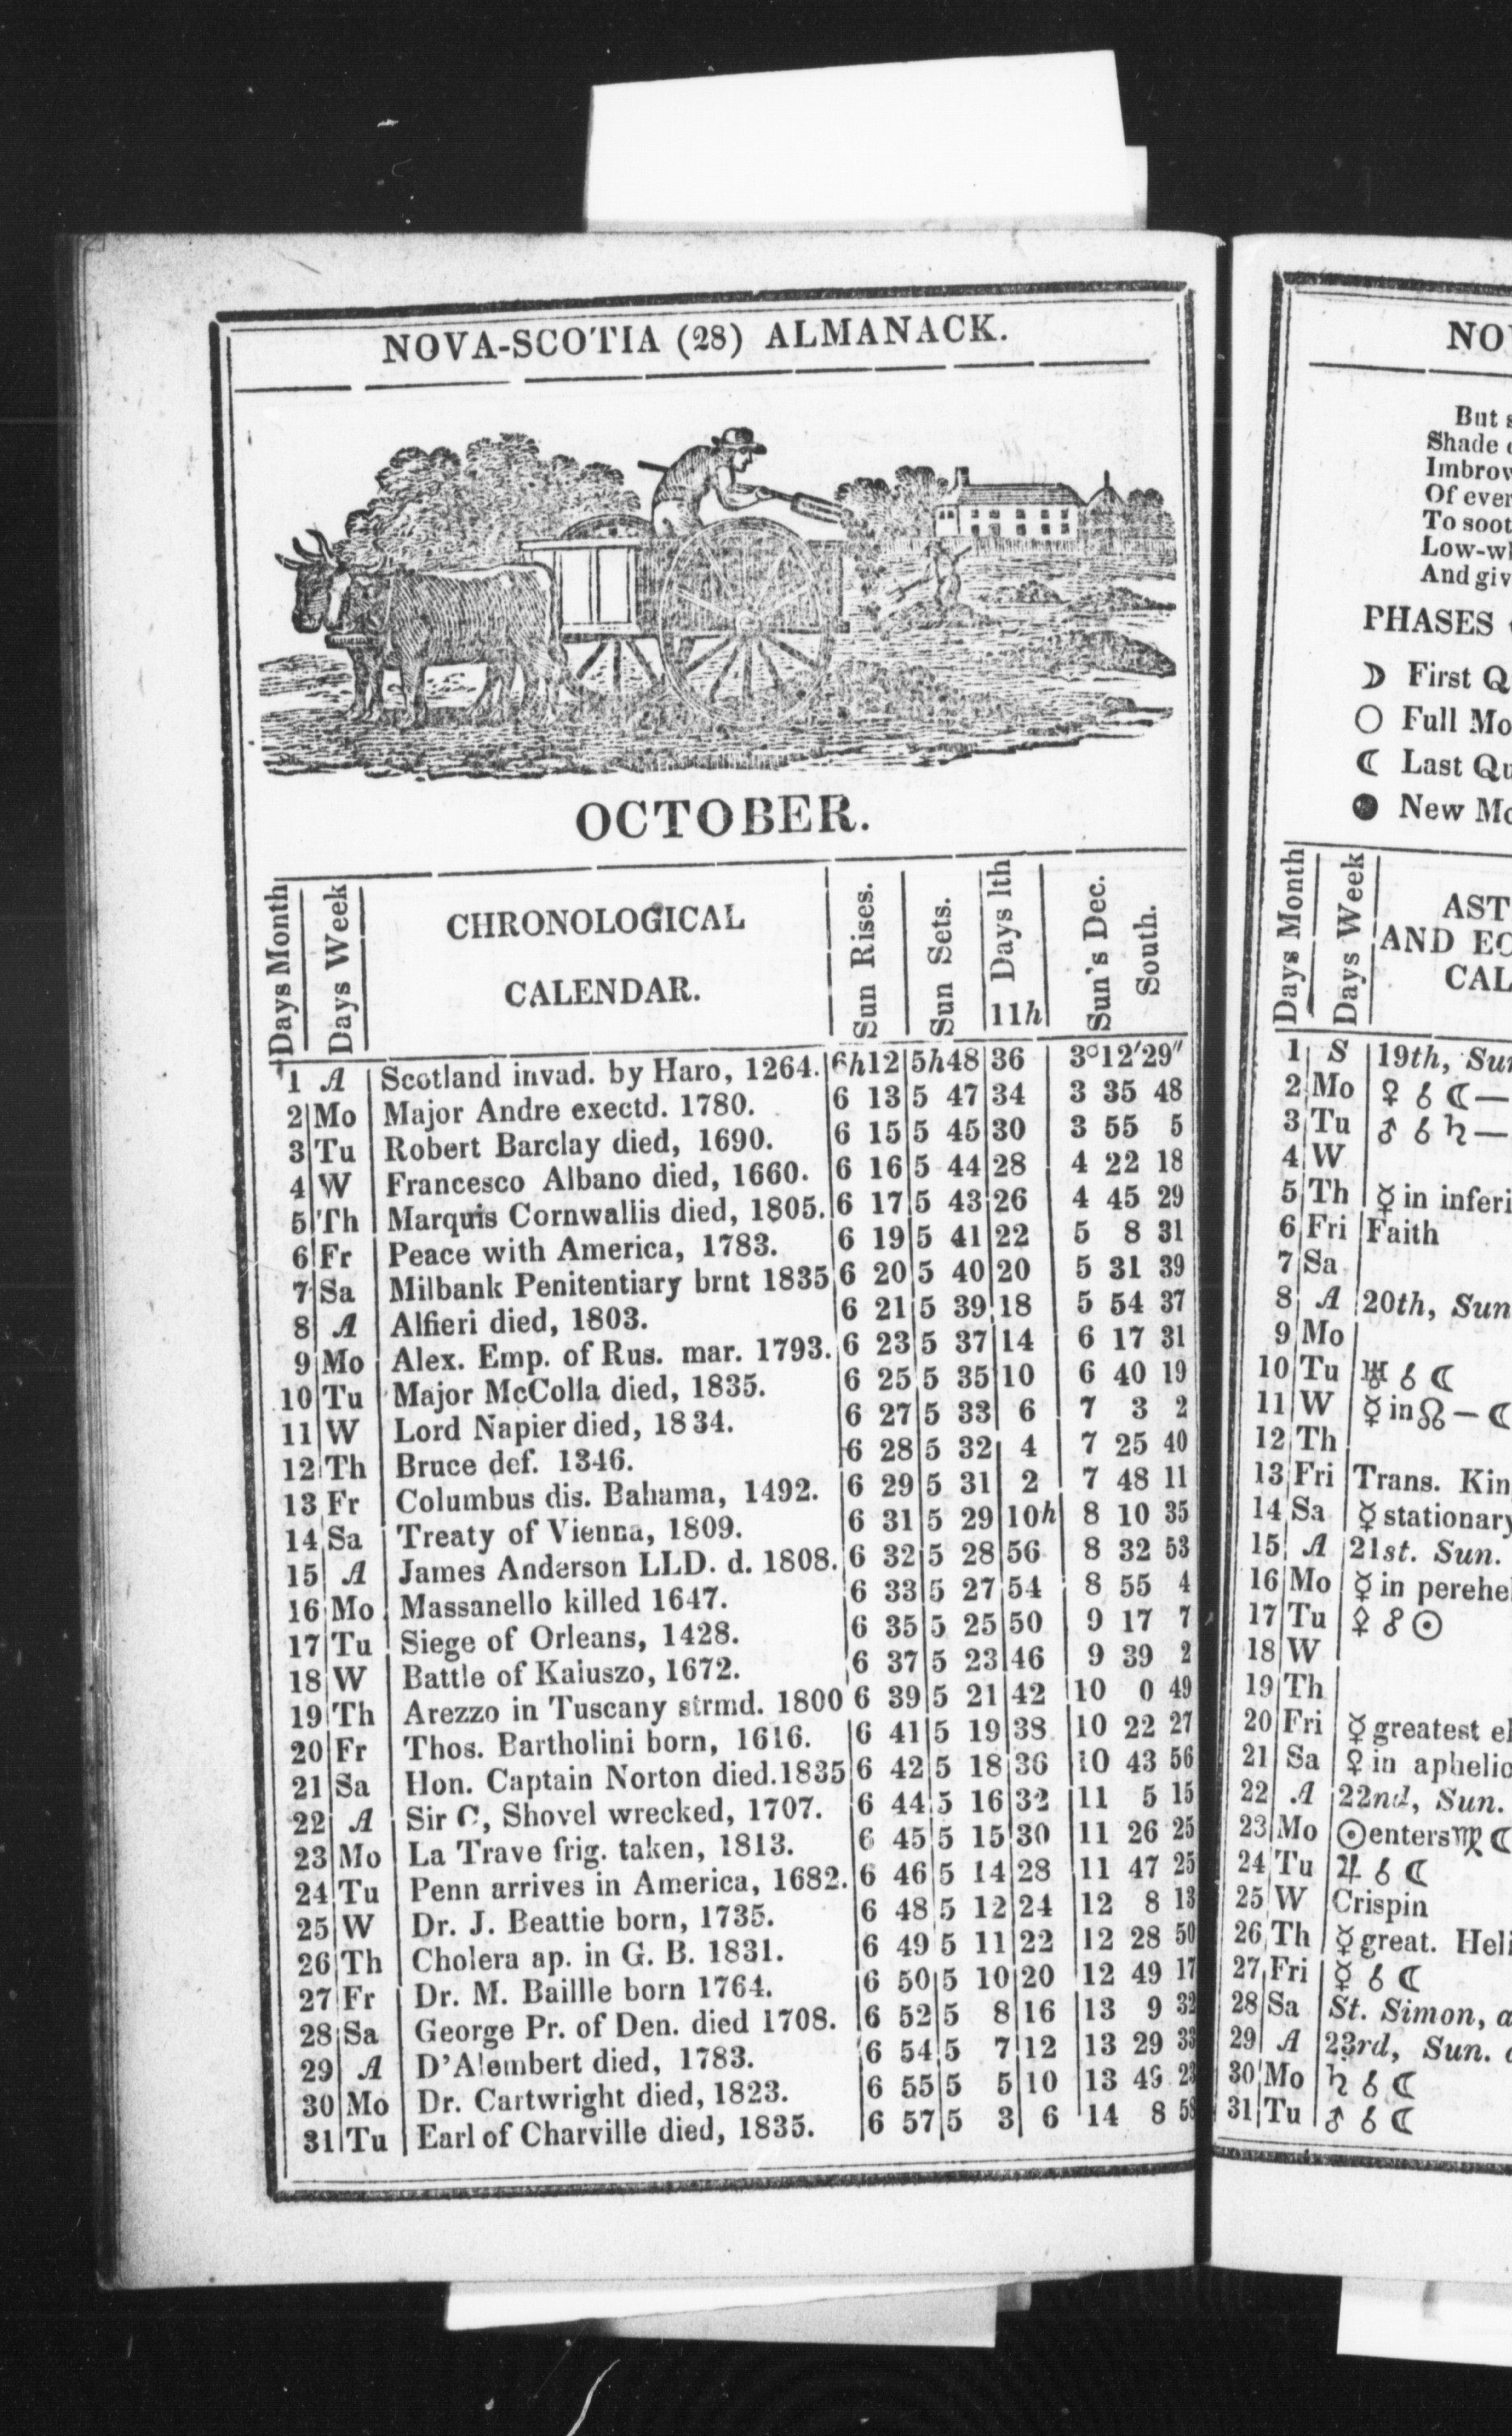 NOVA-SCOTIA (28) ALMANACK.
OCTOBER.
Days Month
Days Week
CHRONOLOGICAL
CALENDAR.
Sun Rises.
Sun Sets.
Days lth
11h
Sun's Dec.
South.
1 A Scotland invad. by Haro, 1264. 6h12 5h48 36 3°12'29"
2 Mo Major Andre exectd. 1780. 6 13 5 47 34 3 35 48
3 Tu Robert Barclay died, 1690. 6 15 5 45 30 3 55 5
4 W Francesco Albano died, 1660. 6 16 5 44 28 4 22 18
5 Th Marquis Cornwallis died, 1805. 6 17 5 43 26 4 45 29
6 Fr Peace with America, 1783. 6 19 5 41 22 5 8 31
7 Sa Milbank Penitentiary brnt 1835 6 20 5 40 20 5 31 39
8 A Alfieri died, 1803. 6 21 5 39 18 5 54 37
9 Mo Alex. Emp. of Rus. mar. 1793. 6 23 5 37 14 6 17 31
10 Tu Major McColla died, 1835. 6 25 5 35 10 6 40 19
11 W Lord Napier died, 1834. 6 27 5 33 6 7 3 2
12 Th Bruce def. 1346. 6 28 5 32 4 7 25 40
13 Fr Columbus dis. Bahama, 1492. 6 29 5 31 2 7 48 11
14 Sa Treaty of Vienna, 1809. 6 31 5 29 10h 8 10 35
15 A James Anderson LLD. d. 1808. 6 32 5 28 56 8 32 53
16 Mo Massanello killed 1647. 6 33 5 27 54 8 55 4
17 Tu Siege of Orleans, 1428. 6 35 5 25 50 9 17 7
18 W Battle of Kaiuszo, 1672. 6 37 5 23 46 9 39 2
19 Th Arezzo in Tuscany strmd. 1800 6 39 5 21 42 10 0 49
20 Fr Thos. Bartholini born, 1616. 6 41 5 19 38 10 22 27
21 Sa Hon. Captain Norton died.1835 6 42 5 18 36 10 43 56
22 A Sir C, Shovel wrecked, 1707. 6 44 5 16 32 11 5 15
23 Mo La Trave frig. taken, 1813. 6 45 5 15 30 11 26 25
24 Tu Penn arrives in America, 1682. 6 46 5 14 28 11 47 25
25 W Dr. J. Beattie born, 1735. 6 48 5 12 24 12 8 13
26 Th Cholera ap. in G. B. 1831. 6 49 5 11 22 12 28 50
27 Fr Dr. M. Baillle born 1764. 6 50 5 10 20 12 49 17
28 Sa George Pr. of Den. died 1708. 6 52 5 8 16 13 9 32
29 A D'Alembert died, 1783. 6 54 5 7 12 13 29 33
30 Mo Dr. Cartwright died, 1823. 6 55 5 5 10 13 49 23
31 Tu Earl of Charville died, 1835. 6 57 5 3 6 14 8 58
NO
But
Shade
Imbrow
Of ever
To soot
Low-wh
And giv
PHASES
☽ First Q
○ Full Mo
☾ Last Qu
● New Mo
Days Month
Days Week
AST
AND EC
CAL
1 S 19th, Sun
2 Mo ♀ ☌ ☾—
3 Tu ♂ ☌ ♄—
4 W
5 Th ☿ in inferi
6 Fri Faith
7 Sa
8 A 20th, Sun
9 Mo
10 Tu ♅ ☌ ☾
11 W ☿ in ☊ — ☾
12 Th
13 Fri Trans. Kin
14 Sa ☿ stationary
15 A 21st. Sun.
16 Mo ☿ in perehe
17 Tu ⚴ ☍ ☉
18 W
19 Th
20 Fri ☿ greatest el
21 Sa ♀ in aphelio
22 A 22nd, Sun.
23 Mo ☉ enters ♏ ☾
24 Tu ♃ ☌ ☾
25 W Crispin
26 Th ☿ great. Heli
27 Fri ☿ ☌ ☾
28 Sa St. Simon, a
29 A 23rd, Sun.
30 Mo ♄ ☌ ☾
31 Tu ♂ ☌ ☾